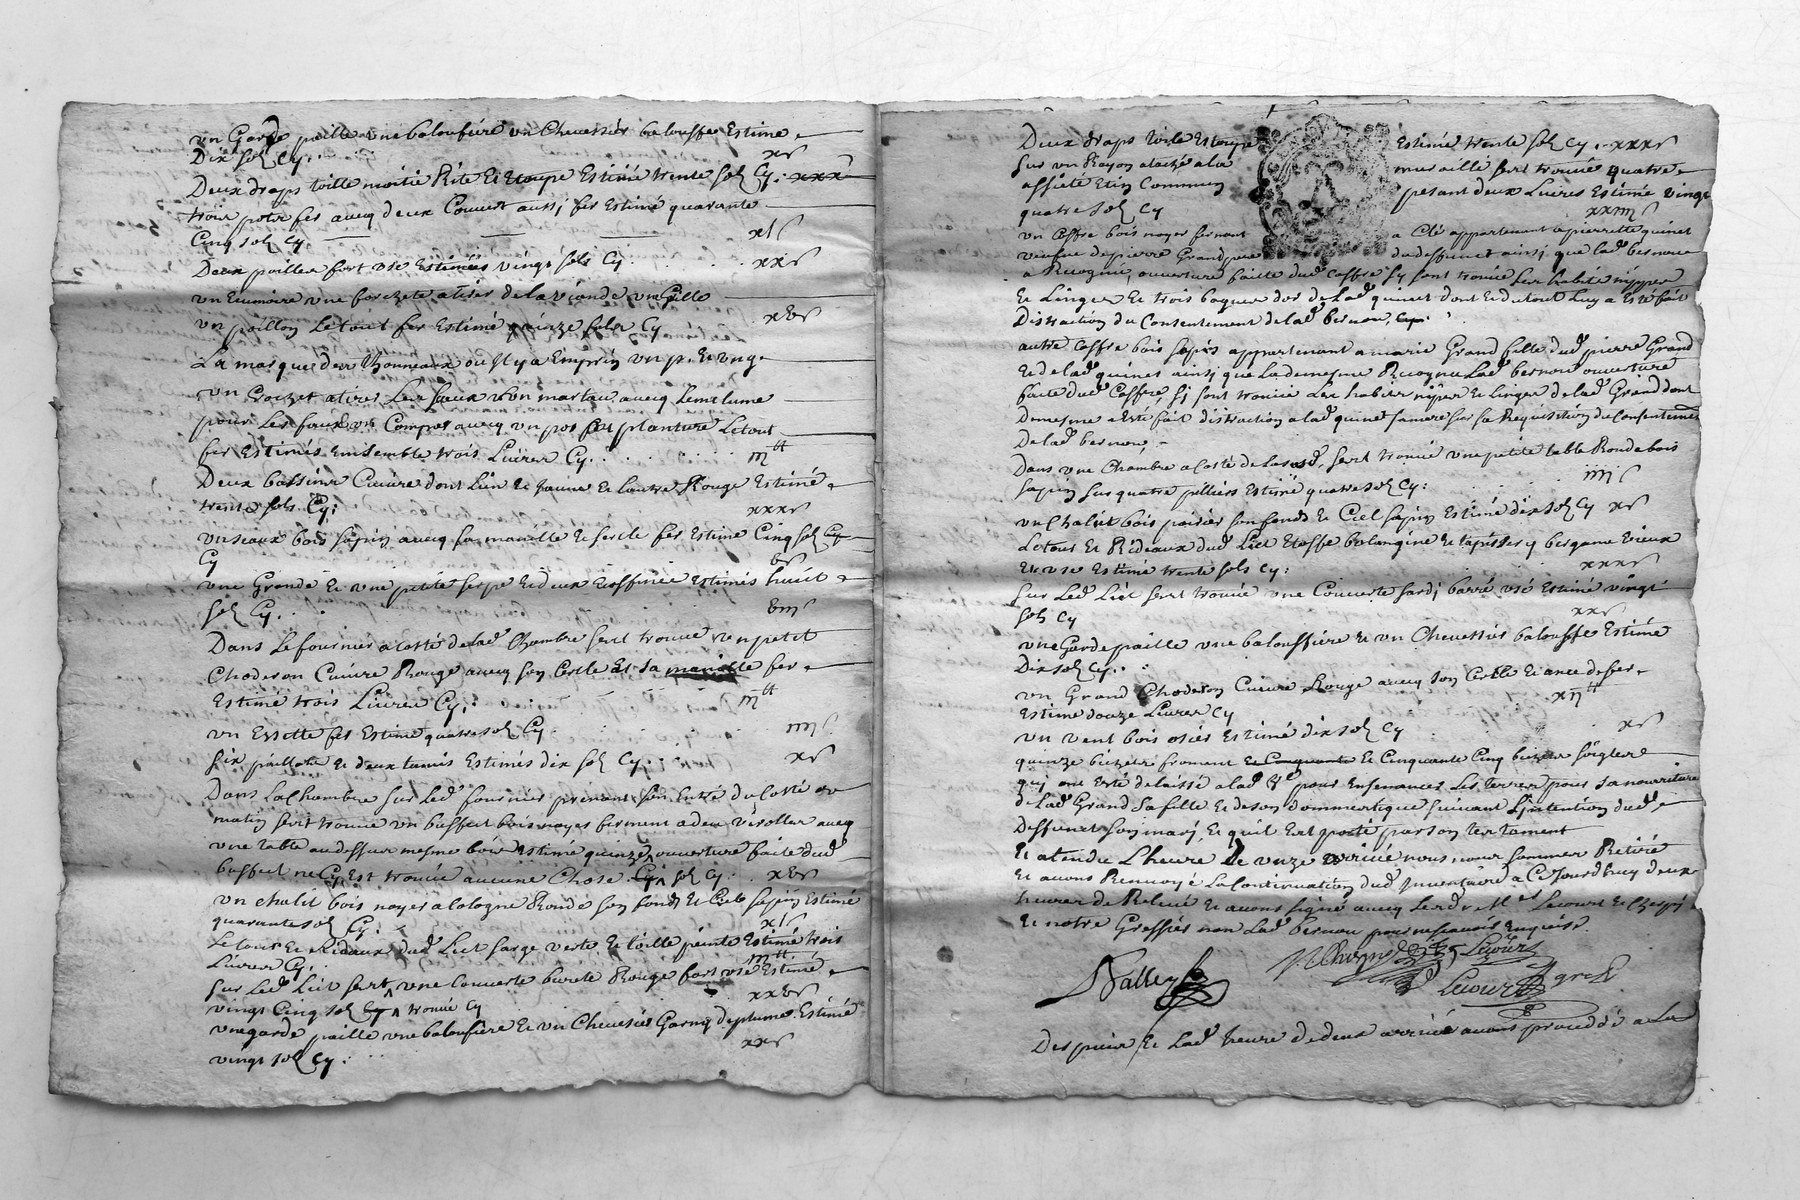 un Garde paille une baloufiere un Cheuessier balouffe Estimé
Dix sol Cy. xs
Deux draps toille moitié Rite Et Etoupe Estimé trente sol Cy. xxxs
trois potz fer aueq deux Couuert aussj fer Estimé quarante
Cinq sol Cy xls
Deux poiller fort usé Estimées vingt sols Cy xxs
un Ecumoire une forezete a tirer de la viande un Grille
un poillon Le tout fer Estimé quinze solz Cy xvs
La marque des Thonneaux ou Il y a Emprin un p. Et un g.
un Croizet a tirer Les un martau aueq
pour Les un Compas aueq un pos fer Le tout
fer Estimés Emsemble trois Liures Cy. iij tt
Deux bassins Cuiure dont L'un Et Jaune Et l'autre Rouge Estimé
trente sols Cy: xxxs
un seaux bois sapin aueq sa maniille Et sercle fer Estimé Cinq sol Cy
Cy vs
une Grande Et une petite serpe Et deux Estimés huict
sol Cy. viijs
Dans Le fournier a Costé de lad. Chambre s'est trouué un petit
Choderon Cuiure Rouge aueq son Cercle Et sa maniille fer
Estimé trois Liures Cy. iij tt
un Essette fer Estimé quatre sol Cy iiijs
six paillate Et deux tamis Estimés dix sol Cy. xs
Dans La Chambre sur Led. fournier prenant son Entré du Costé de
matin s'est trouué un buffect bois noyer ferment a deux aueq
une table au dessur mesme bois Estimé quinze ouuerture faite dud.
buffect ne Cy Est trouué aucune Chose Cy sol Cy. xvs
un chalit bois noyer a Cologne Ronde son fonds Et Ciel sapin Estimé
quarante sol Cy. xls
Le tour Et Rideaux dud. Lict sarge verte Et toille peinte Estimé trois
Liures Cy. iij tt
sur Led. Lict s'est une Couuerte burete Rouge fort usé Estimé
vingt Cinq sol Cy trouué Cy xxvs
une garde paille une baloufiere Et un Cheuesier Garny de plume Estimé
vingt sol Cy: xxs
Deux draps toile Etoupe Estimé trente sol Cy. xxxs
sur un Rayon atachê a la muraille s'est trouué quatre
assiete Etin Commun pesant deux Liures Estimé vingt
quatre sol Cy xxiiijs
un Coffre bois noyer fermant a Clé appartenant a pierrette quinet
veufue de pierre Grand pere du deffunct ainsj que lad. bernoue
a Recognu, ouuerture faicte dud. Coffre sy sont trouué Ser habitz nipper
Et Linges Et trois baguer d'or de lad. quinet dont Et du tout Luy a Esté fait
Distraction du Consentement de lad. bernou, Cy.
autre Coffre bois sapin appartenant a marie Grand fille dud. pierre Grand
Et de lad. quinet ainsj que La demesme Recognu Lad. bernoue ouuerture
faite dud. Coffre sj sont trouué Les habitz nipper Et linges de lad. Grand dont
demesme a Esté fait distraction a lad. quinet sa mere sur sa Requisition de Consentement
de lad. bernoue.
Dans une Chambre a Costé de La susd. s'est trouué une petite table Ronde bois
sapin sur quatre pilliers Estimé quatre sol Cy: iiijs
un Chalict bois poirier son fonds Et Ciel sapin Estimé dix sol Cy xs
Le tour Et Rideaux dud. Lict Etoffe bolangine Et tapisserj bergame vieux
Et usé Estimé trente sols Cy: xxxs
sur Led. Lict s'est trouué une Couuerte sardj barré usé Estimé vingt
sols Cy xxs
une Garde paille une balouffiere Et un Cheuessier balouffe Estimé
Dix sol Cy. xs
un Grand Choderon Cuiure Rouge aueq son Cercle Et ance de fer
Estimé douze Liures Cy xij tt
un Vent bois osier Estimé dix sol Cy xs
quinze bizets fromant Et Cinquante Et Cinquante Cinq bizets soigler
qui ont Esté delaissé a lad. pour Ensemancer Les terres pour sa nourriture
de lad. Grand sa fille Et de son dommestique suiuant L'intention dud.
deffunct son marj, Et qu'il Est porté par son testament
Et atendu L'heure de unze arriué nous nous sommes Retiré
Et auons Renuoyé La Continuation dud. Inuentaire a Ce Jourdhuy deux
heures de Releué Et auons signé aueq Les dr. Mes Lecourt Et Cherpj
Et notre Greffier non Lad. bernou pour ne scauoir Enquise.
Lecourt
Lecourt gref.
Depuis Et Lad. heure de deux arriué auons procedé a La